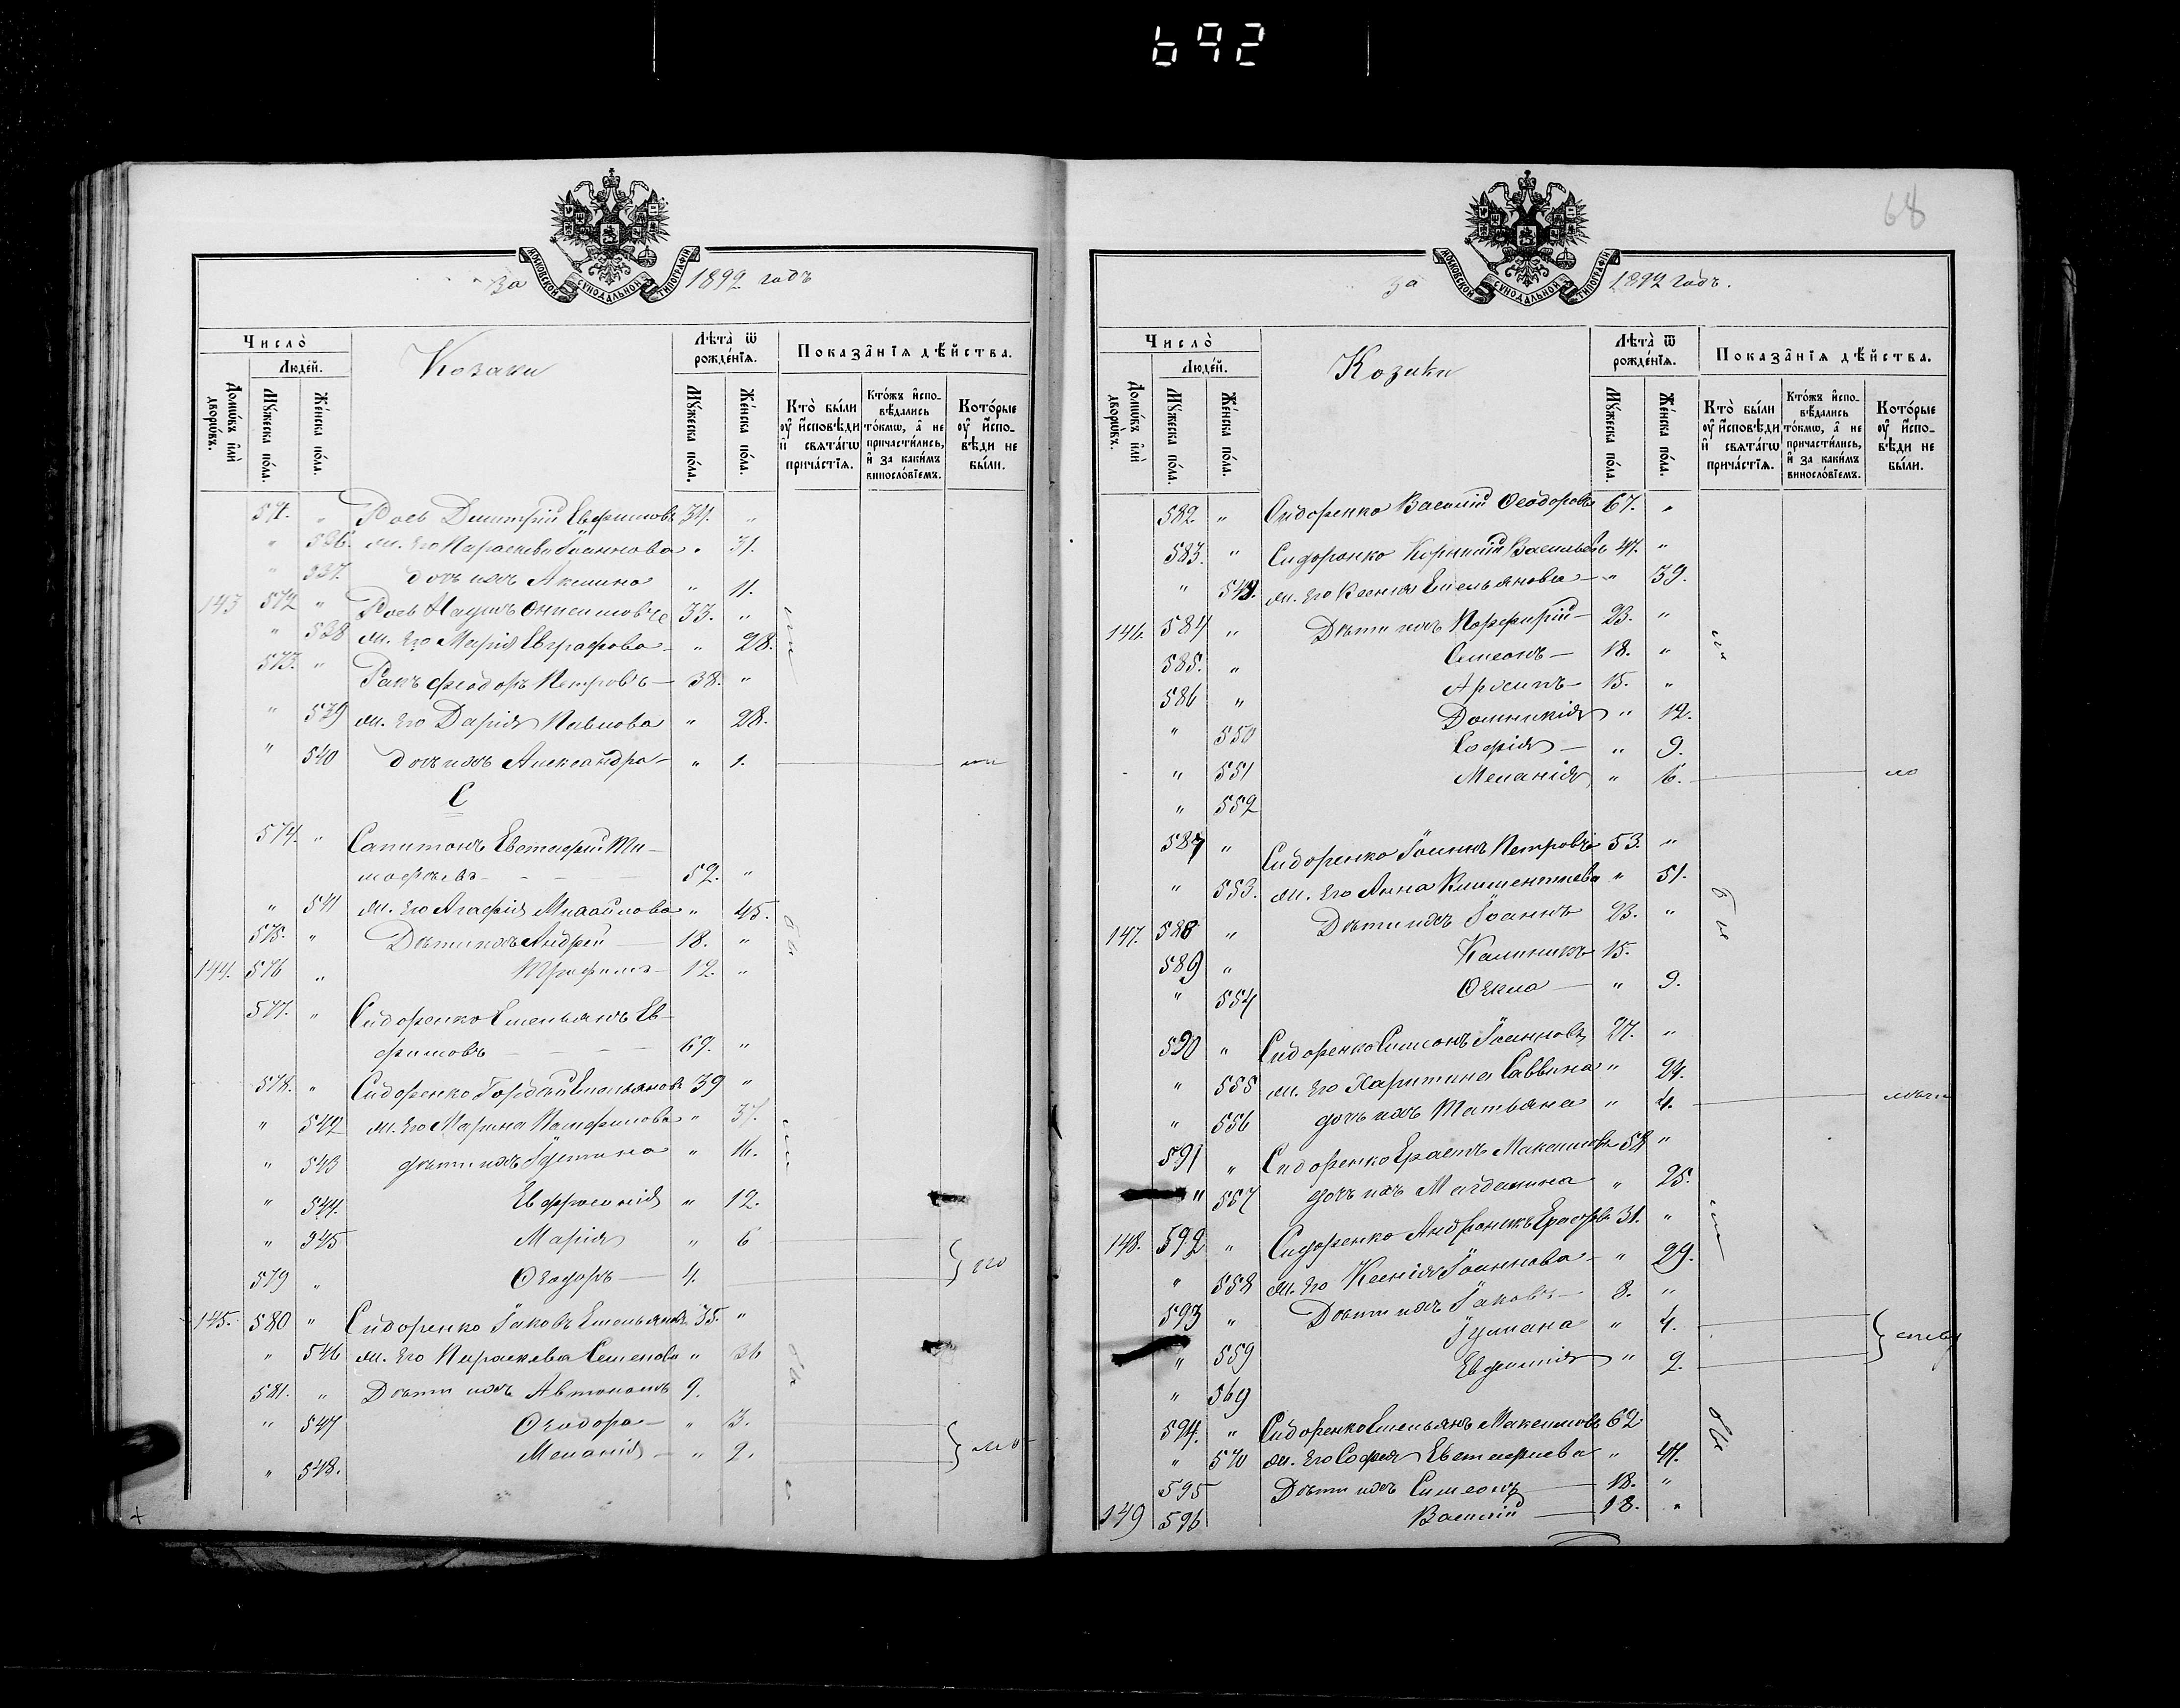 692
за 1892 годъ
МОСКОВСКОЙ СѴНОДАЛЬНОЙ ТИПОГРАФІИ
Число̀
Людей.
Домѡ́въ и҆лѝ дворѡ́въ.
Мꙋ́жеска по́ла.
Же́нска по́ла.
Козаки
Лѣ́та ѿ рожде́нїѧ.
Мꙋ́жеска по́ла.
Же́нска по́ла.
Показа̑нїѧ дѣ́йства.
Кто̀ бы́ли ᲂу҆ и҆сповѣди и҆ свѧта́гѡ прича́стїѧ.
Кто́жъ и҆спо-
вѣ́дались
то́кмѡ, а҆ не
причасти́лись,
и҆ за каки́мъ
виносло́вїемъ.
Кото́рые ᲂу҆ и҆спо-
вѣди не
бы́ли.
571. " Рось Димитрій Евфимовъ 34. "
" 536. ж. его Параскева Іоаннова " 31.
" 537. дочь ихъ Акилина " 11.
143 572 " Рось Наумъ Онисимовъ 33. "
" 538 ж. его Марія Евграфова " 28.
573. " Ракъ Феодоръ Петровъ 38. "
" 539 ж. его Дарія Павлова " 28.
" 540 дочь ихъ Александра " 1.
С
574. " Сапитонъ Евстафій Ти-
мофѣевъ 52. "
" 541 ж. его Агафія Михайлова " 45.
575. " Дѣти ихъ Андрей 18. "
144. 576 " Трофимъ 12. "
577. " Сидоренко Емельянъ Ев-
фимовъ 67. "
578. " Сидоренко Гордѣй Емельяновъ 39 "
" 542 ж. его Марина Памфилова " 37.
" 543 дѣти ихъ Іустина " 16.
" 544. Евфросинія " 12.
" 545 Марія " 6
579 " Ѳеодоръ 4.
145. 580 " Сидоренко Іаковъ Емельяновъ 35. "
" 546 ж. его Параскева Семенова " 36
581. " Дѣти ихъ Автономъ 9.
" 547 Ѳеодора " 3.
" 548. Меланія " 2.
68
за 1892 годъ.
МОСКОВСКОЙ СѴНОДАЛЬНОЙ ТИПОГРАФІИ
Число̀
Людей.
Домѡ́въ и҆лѝ дворѡ́въ.
Мꙋ́жеска по́ла.
Же́нска по́ла.
Козаки
Лѣ́та ѿ рожде́нїѧ.
Мꙋ́жеска по́ла.
Же́нска по́ла.
Показа̑нїѧ дѣ́йства.
Кто̀ бы́ли ᲂу҆ и҆сповѣди и҆ свѧта́гѡ прича́стїѧ.
Кто́жъ и҆спо-
вѣ́дались
то́кмѡ, а҆ не
причасти́лись,
и҆ за каки́мъ
виносло́вїемъ.
Кото́рые ᲂу҆ и҆спо-
вѣди не
бы́ли.
582. " Сидоренко Василій Ѳеодоровъ 67. "
583. " Сидоренко Корнилій Васильевъ 47. "
" 549. ж. его Ксенія Емельянова " 39.
146. 584 " Дѣти ихъ Порфирій 23. "
585. " Симеонъ 18. "
586 " Архипъ 15. "
" 550 Домникія " 12.
" 551 Софія " 9.
" 552 Меланія " 6.
587 " Сидоренко Іоаннъ Петровъ 53. "
" 553. ж. его Анна Климентіева " 51.
147. 588 " Дѣти ихъ Іоаннъ 23. "
589 " Калиникъ 15.
" 554 Ѳекла " 9.
590 " Сидоренко Симеонъ Іоанновъ 27. "
" 555 ж. его Харитина Саввина " 24.
" 556 дочь ихъ Татьяна " 4.
591 " Сидоренко Ерастъ Максимовъ 58 "
" 557 дочь ихъ Магдалина " 25.
148. 592 " Сидоренко Андроникъ Ерастовъ 31. "
" 558 ж. его Ксенія Іоаннова " 29.
593 " Дѣти ихъ Іаковъ 8. "
" 559 Іуліана " 4.
" 569 Евфимія " 2.
594. " Сидоренко Емельянъ Максимовъ 62
" 570 ж. его Софія Евстафіева " 47.
595 Дѣти ихъ Симеонъ 18. "
149 596 Василій 18. "